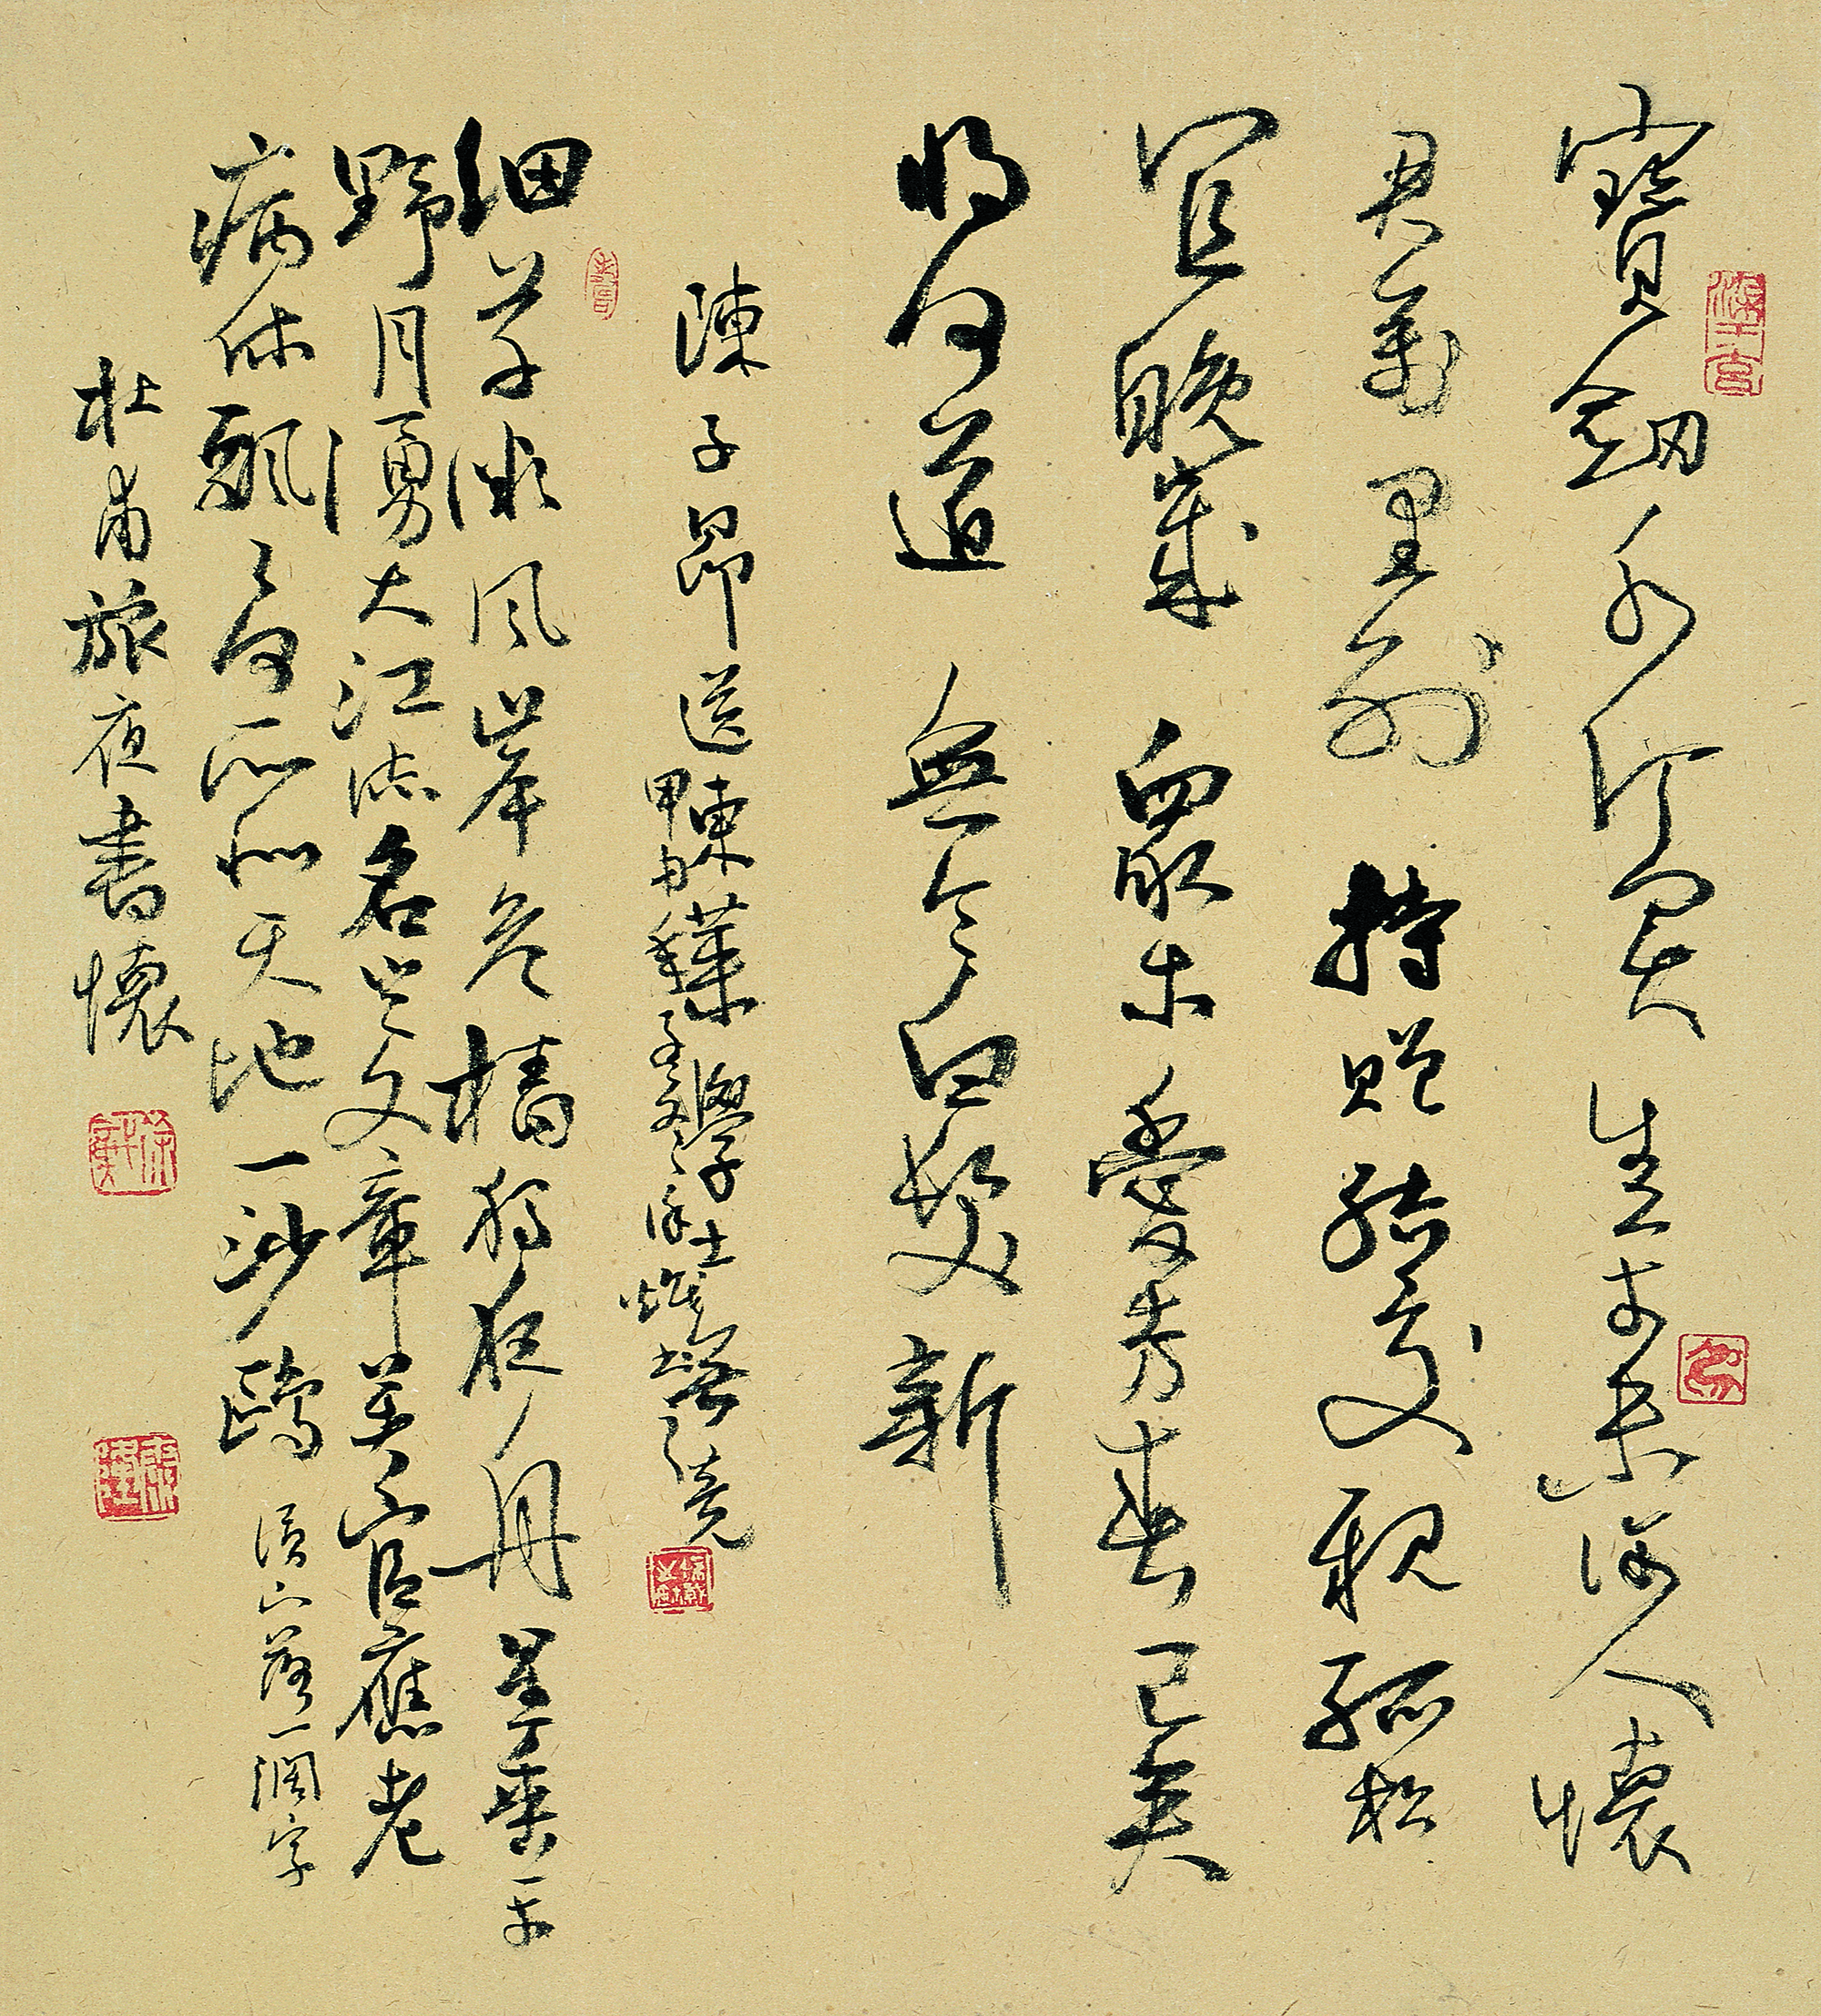 寶劍千金買生平未許人懷
君萬里別持贈結交親孤松
宜晚歲眾木愛芳春已矣
將何道無令白髮新
陳子昂送東萊學士無競
甲申
細草微風岸危檣獨夜舟星垂平
野月湧大江流名豈文章著官應老
病休飄飄何所似天地一沙鷗
落一濶字
杜甫旅夜書懷